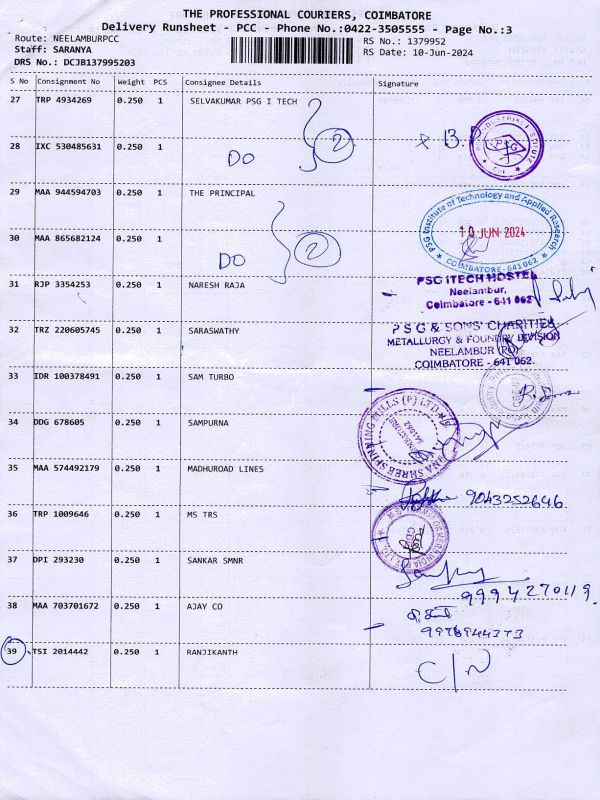 THE PROFESSIONAL COURIERS, COIMBATORE
Delivery Runsheet - PCC - Phone No.:0422-3505555 - Page No.:3
Route: NEELAMBURPCC
RS No.: 1379952
Staff: SARANYA
RS Date: 10-Jun-2024
DRS No.: DCJB137995203
S No Consignment No Weight PCS Consignee Details Signature
27 TRP 4934269 0.250 1 SELVAKUMAR PSG I TECH
2
PSG
28 IXC 530485631 0.250 1
DO
29 MAA 944594703 0.250 1 THE PRINCIPAL
PSG Institute of Technology and Applied Research
10 JUN 2024
COIMBATORE-641 062
30 MAA 865682124 0.250 1
2
DO
31 RJP 3354253 0.250 1 NARESH RAJA
PSG ITECH HOSTEL
Neelambur,
Coimbatore - 641 062
32 TRZ 220605745 0.250 1 SARASWATHY
P S G & SONS' CHARITIES
METALLURGY & FOUNDRY DIVISION
NEELAMBUR (PO)
COIMBATORE - 641 062.
33 IDR 100378491 0.250 1 SAM TURBO
34 DDG 678605 0.250 1 SAMPURNA
35 MAA 574492179 0.250 1 MADHUROAD LINES
9043252646
36 TRP 1009646 0.250 1 MS TRS
37 DPI 293230 0.250 1 SANKAR SMNR
9994270119.
38 MAA 703701672 0.250 1 AJAY CO
9978944373
39 TSI 2014442 0.250 1 RANJIKANTH
C/N